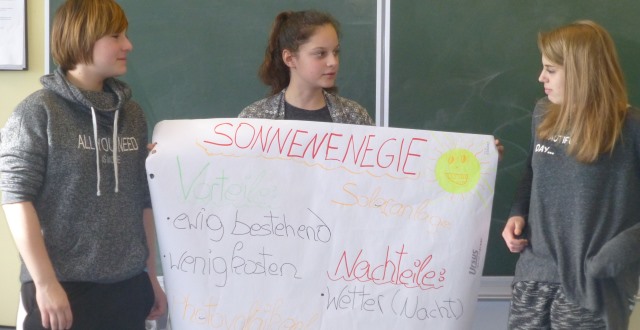 SONNENENEGIE
Vorteile
• ewig bestehend
• wenig kosten
Solaranlage
Nachteile:
• Wetter (Nacht)
ALL YOU NEED
DAY...